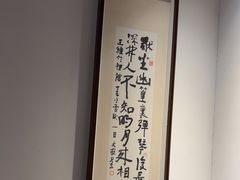 獨坐幽篁裏彈琴復長
深林人不知明月来相
王維竹裡館